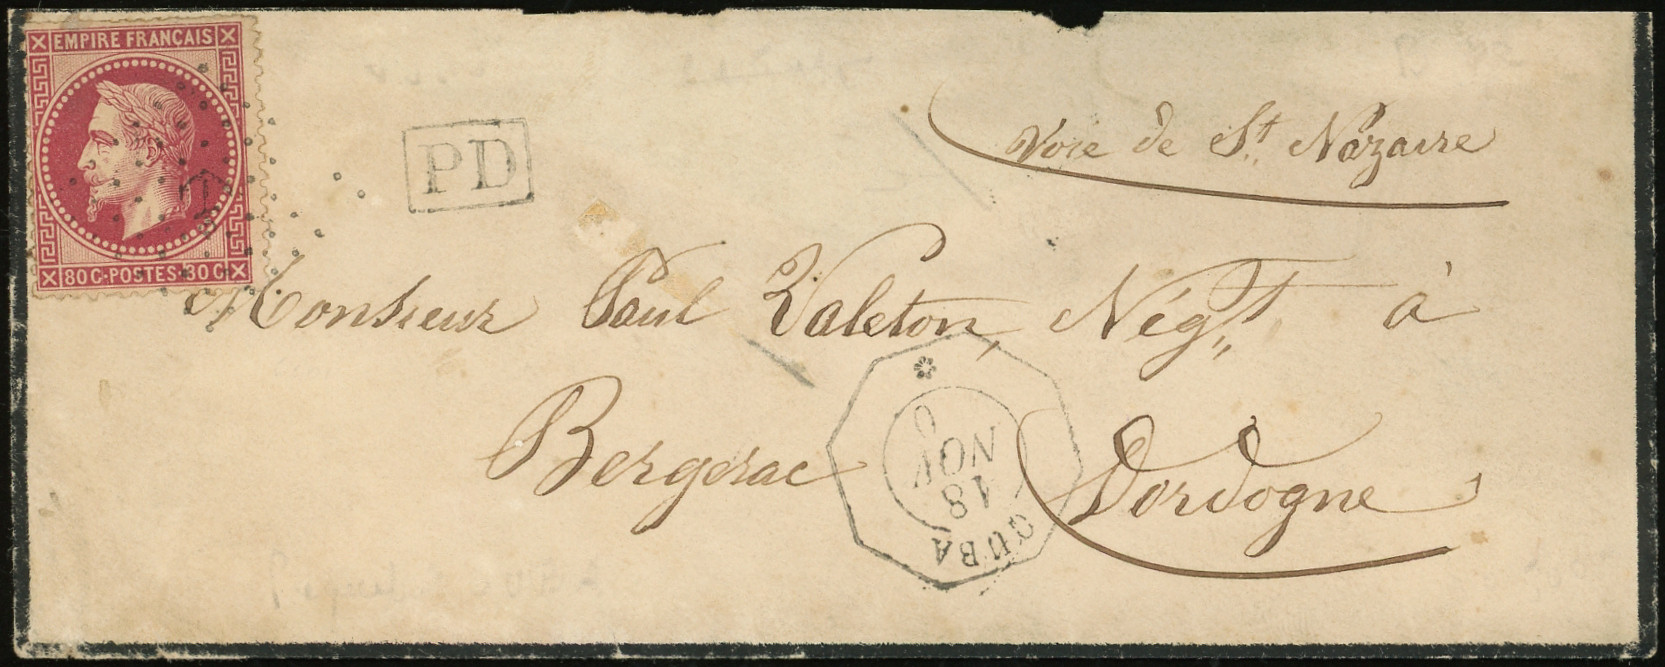 EMPIRE FRANCAIS
80 C· POSTES· 80 C
PD
Voie de St Nazaire
Monsieur Paul Valeton, Négt à
Bergerac Dordogne
CUBA
18
NOV